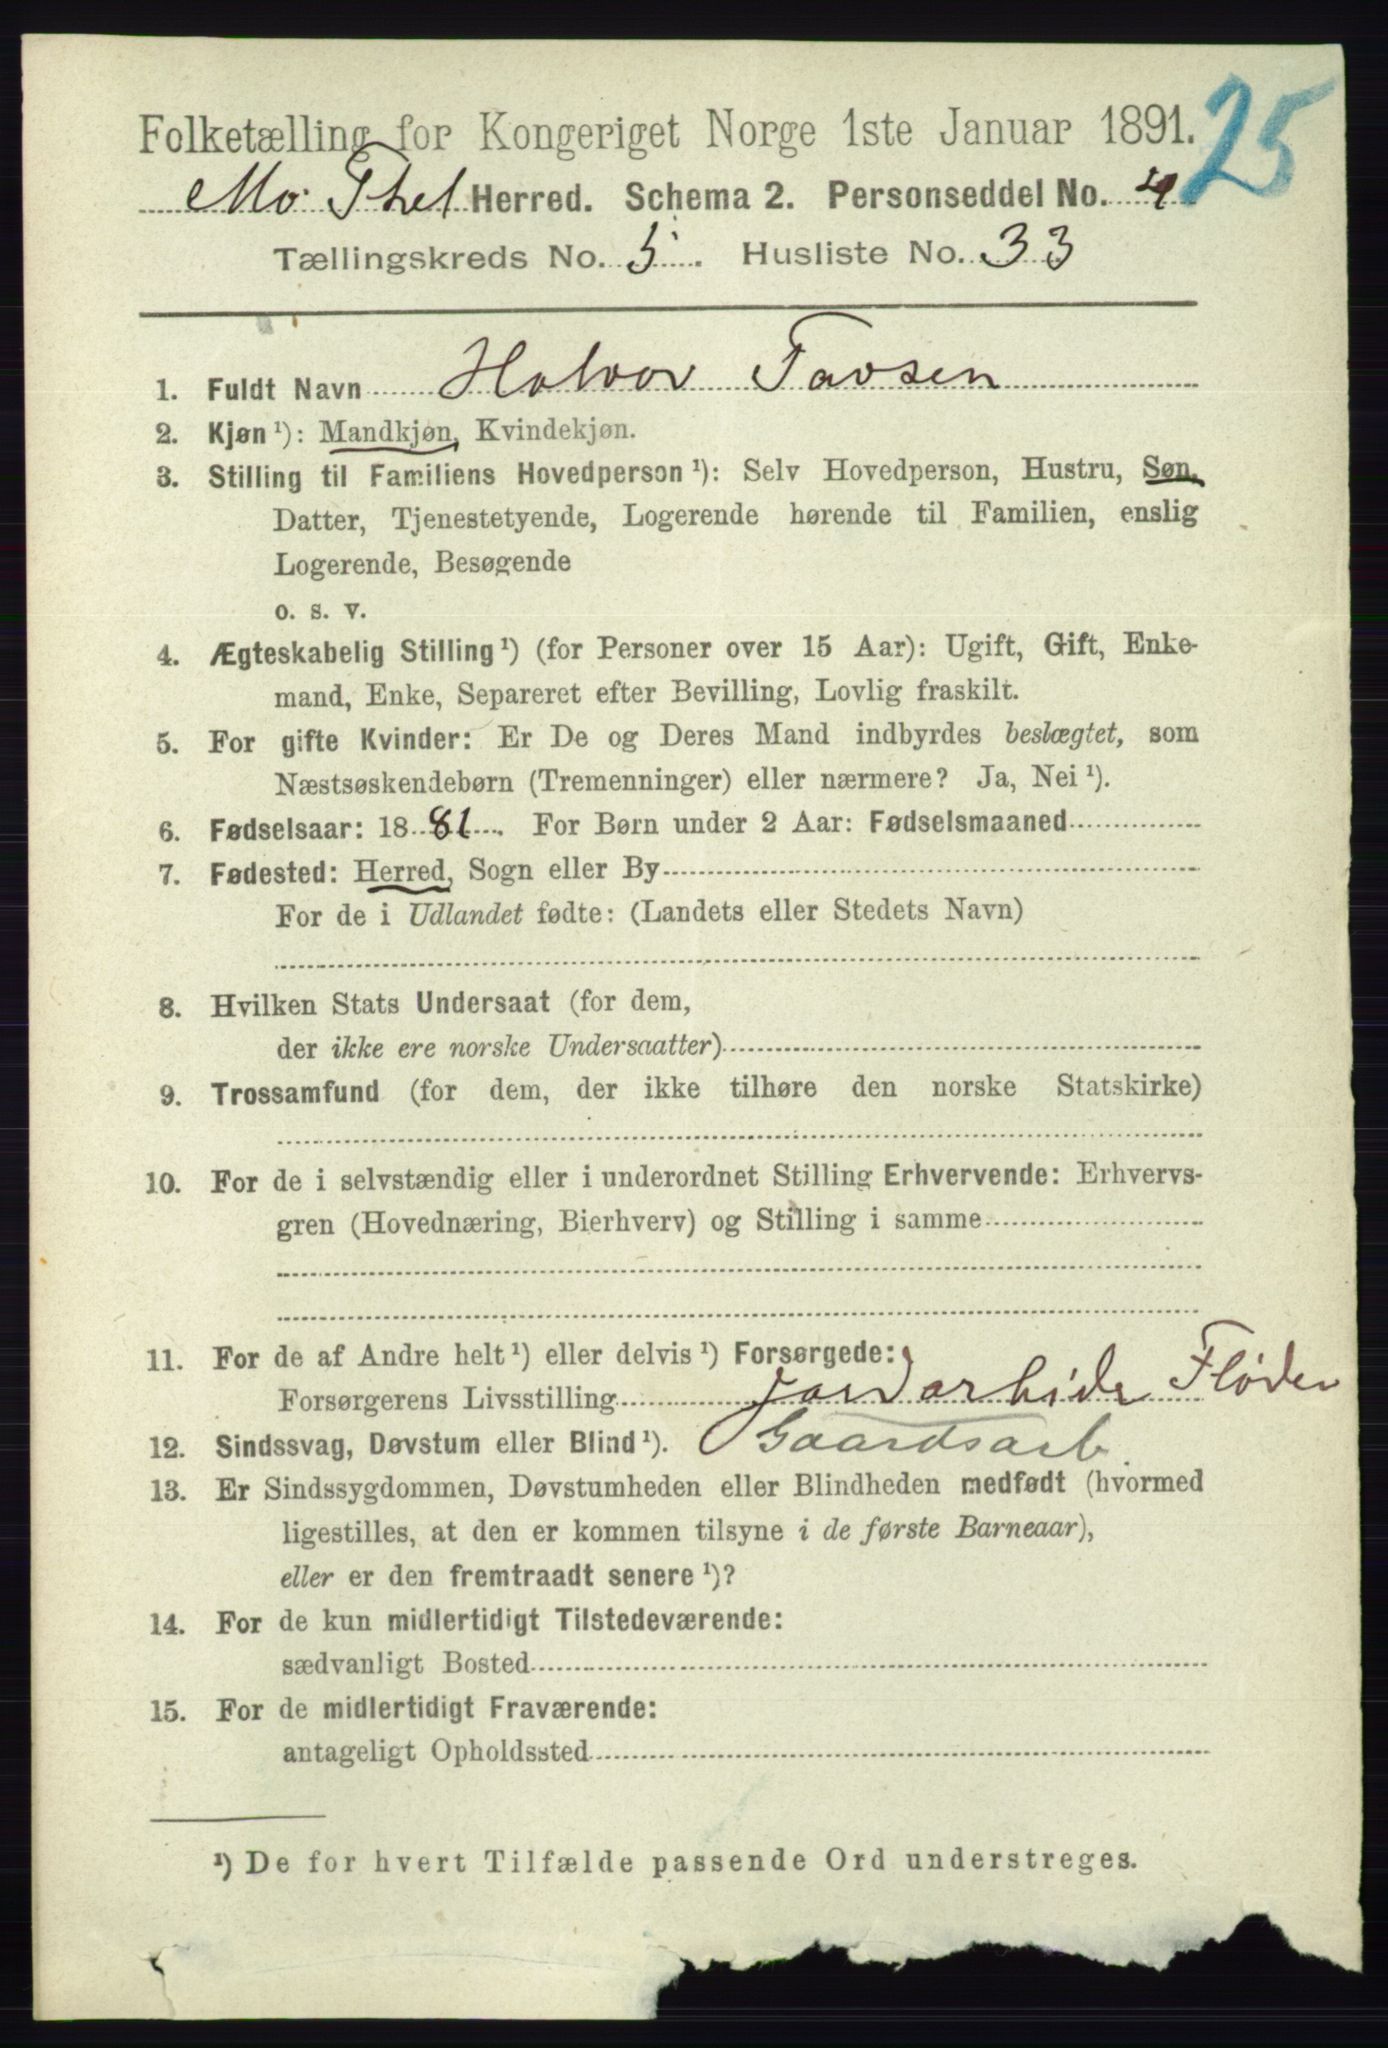 25
Folketælling for Kongeriget Norge 1ste Januar 1891.
Mo. Thel Herred. Schema 2. Personseddel No. 4
Tællingskreds No. 5. Husliste No. 33
1. Fuldt Navn Halvor Tavsen
2. Kjøn ¹): Mandkjøn, Kvindekjøn.
3. Stilling til Familiens Hovedperson ¹): Selv Hovedperson, Hustru, Søn,
Datter, Tjenestetyende, Logerende hørende til Familien, enslig
Logerende, Besøgende
o. s. v.
4. Ægteskabelig Stilling ¹) (for Personer over 15 Aar): Ugift, Gift, Enke-
mand, Enke, Separeret efter Bevilling, Lovlig fraskilt.
5. For gifte Kvinder: Er De og Deres Mand indbyrdes beslægtet, som
Næstsøskendebørn (Tremenninger) eller nærmere? Ja, Nei ¹).
6. Fødselsaar: 1881. For Børn under 2 Aar: Fødselsmaaned
7. Fødested: Herred, Sogn eller By
For de i Udlandet fødte: (Landets eller Stedets Navn)
8. Hvilken Stats Undersaat (for dem,
der ikke ere norske Undersaatter)
9. Trossamfund (for dem, der ikke tilhøre den norske Statskirke)
10. For de i selvstændig eller i underordnet Stilling Erhvervende: Erhvervs-
gren (Hovednæring, Bierhverv) og Stilling i samme
11. For de af Andre helt ¹) eller delvis ¹) Forsørgede:
Forsørgerens Livsstilling Jordarbide Fløder
12. Sindssvag, Døvstum eller Blind ¹). Gaardsarb
13. Er Sindssygdommen, Døvstumheden eller Blindheden medfødt (hvormed
ligestilles, at den er kommen tilsyne i de første Barneaar),
eller er den fremtraadt senere ¹)?
14. For de kun midlertidigt Tilstedeværende:
sædvanligt Bosted
15. For de midlertidigt Fraværende:
antageligt Opholdssted
¹) De for hvert Tilfælde passende Ord understreges.